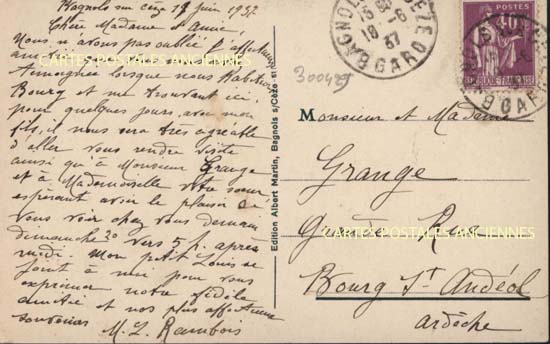 Bagnols sur cèze 18 juin 1937
Chère Madame et Amie,
Nous n'avons pas oublié l'affectueuse
témoignée lorsque nous habitions
Bourg et me trouvant ici,
pour quelques jours, avec mon
fils, il nous sera très agréable
d'aller vous rendre visite
ainsi qu'à Monsieur Grange
et à Mademoiselle votre sœur
espérant avoir le plaisir de
vous voir chez vous demain
dimanche 20 vers 5 h. après
midi. Mon petit Louis se
joint à moi pour vous
exprimer notre fidèle
amitié et nos plus affectueux
souvenirs
M. L. Rambois
CARTES POSTALES ANCIENNES
Edition Albert Martin, Bagnols s/Cèze
BAGNOLS CEZE
18-6
37
GARD
POSTES
40c
300429
Monsieur et Madame
Grange
CARTES POSTALES ANCIENNES
Bourg St Andéol
Ardèche